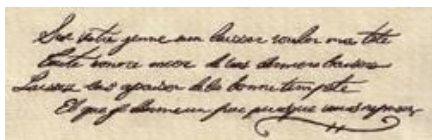 Sur votre jeune sein laissez rouler ma tête
Toute sonore encor de vos derniers baisers
Laissez la s'apaiser de la bonne tempête
Et que je dorme un peu puisque vous reposez